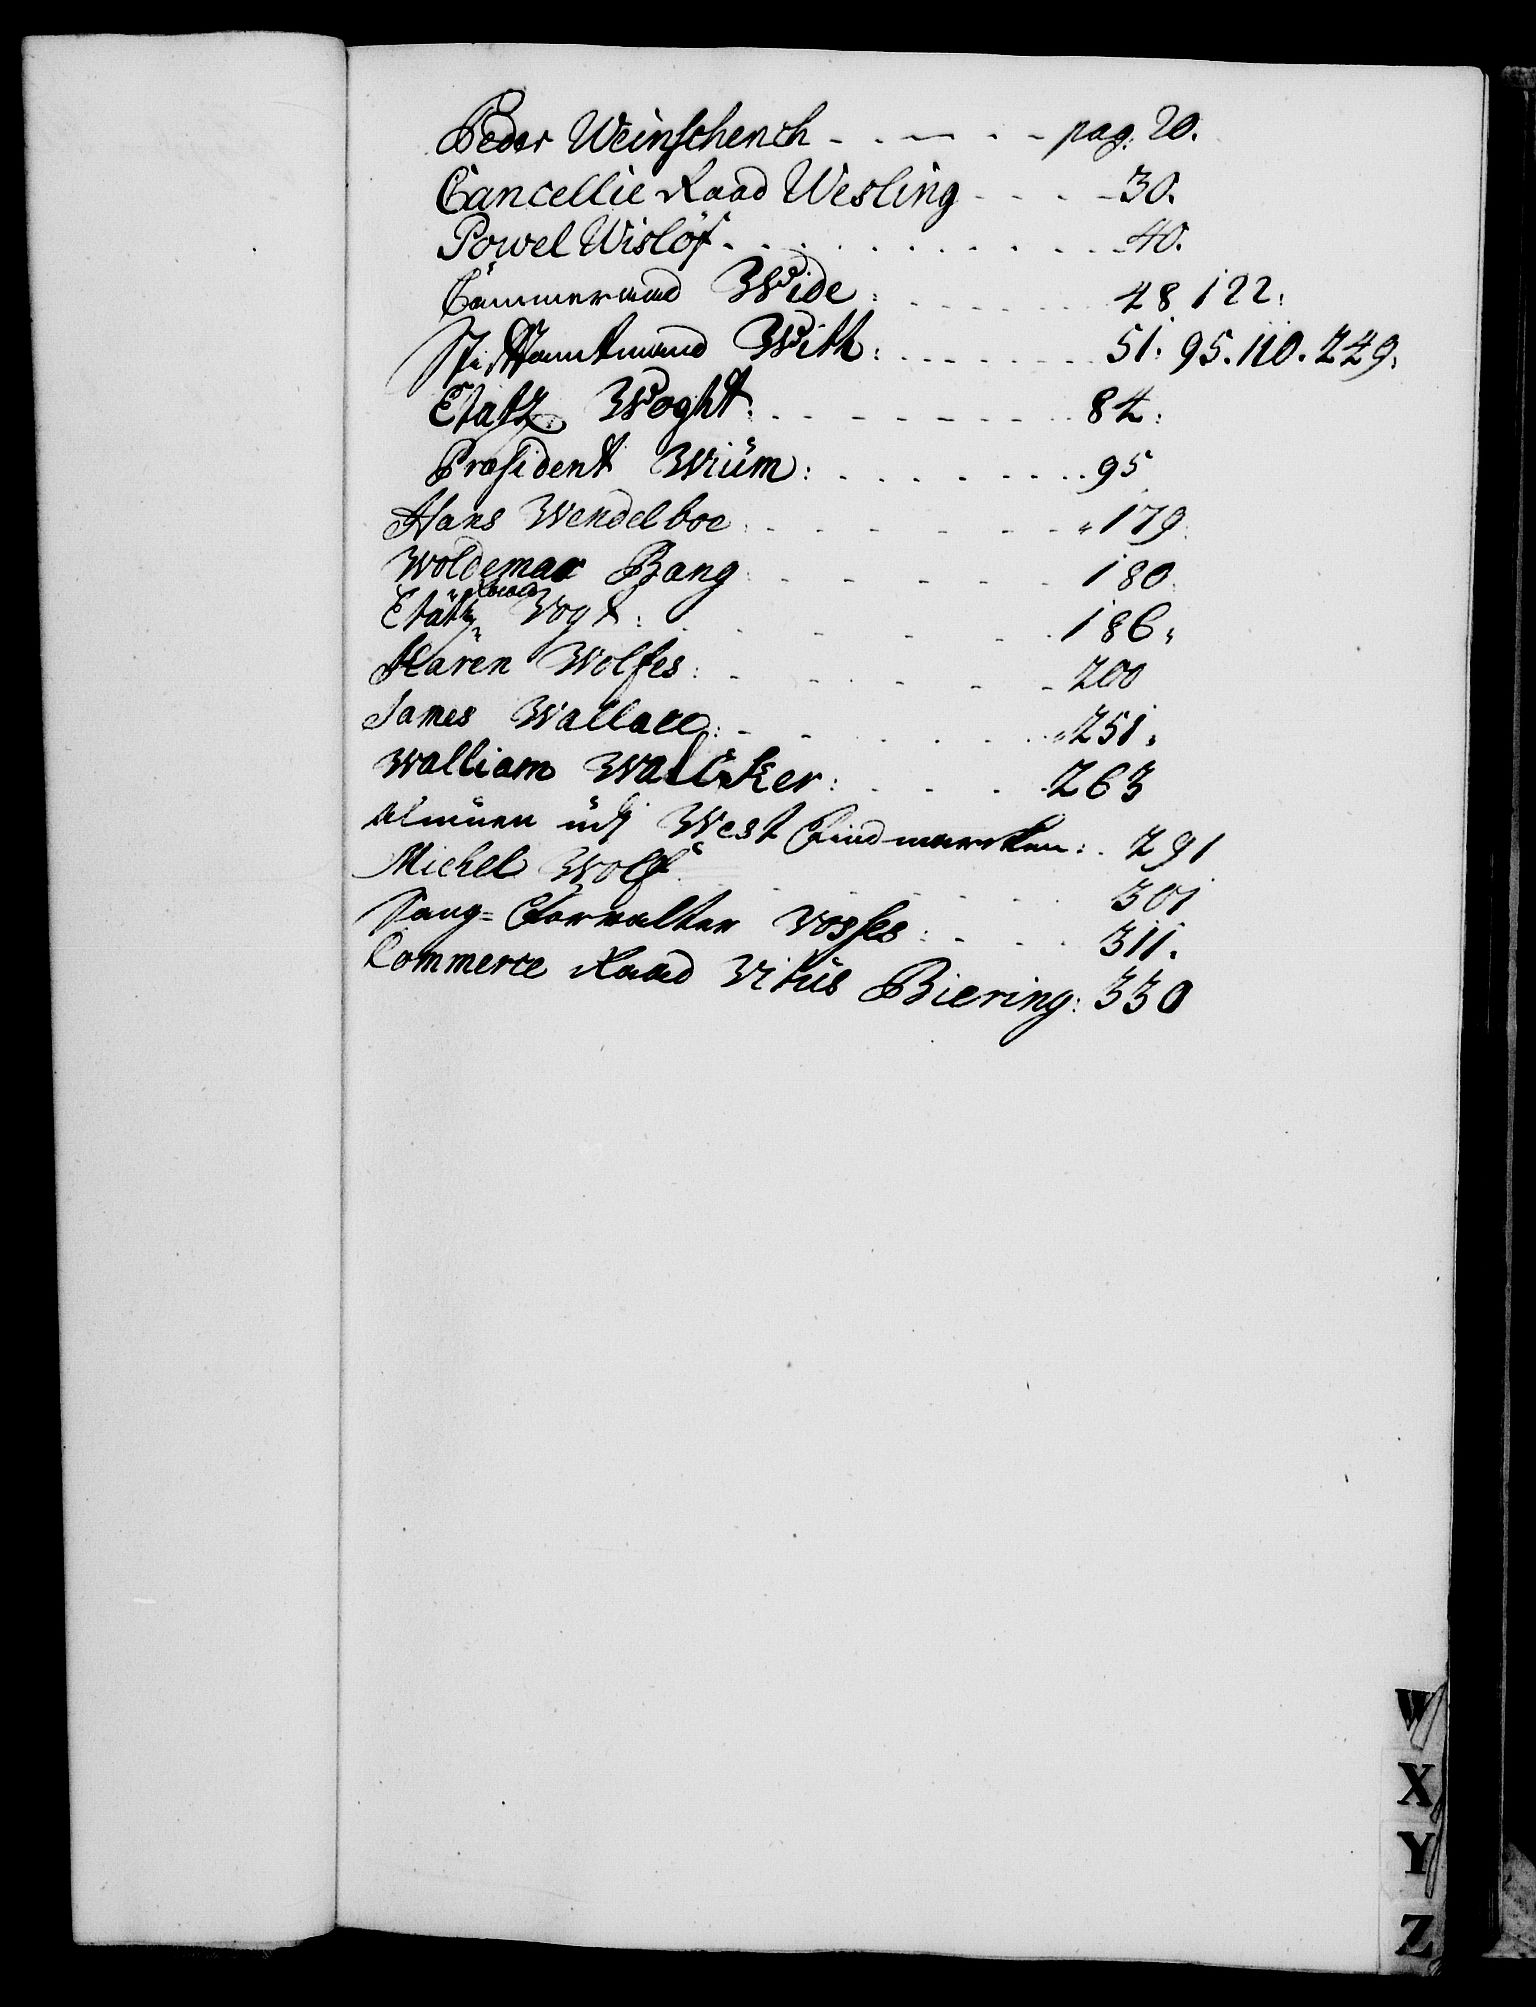 Peder Weinschench - - - - - pag: 20.
Cancellie Raad Wesling - - - - 30.
Powel Wisløf - - - - - - - 40.
Cammerraad Wide: - - - - - 48 122:
Stiftamtmand With: - - - - - - 51: 95. 110. 249:
Etatz Woght: - - - - - - - - 84:
Præsident Wiüm: - - - - - - - 95
Hans Wendelboe: - - - - - - 179
Woldemar Bang: - - - - - 180
Etätz Raad Vogt: - - - - - 186:
Karen Wolfes: - - - - - 200
James Wallace: - - - - - 251:
Walliam Walcker: - - - - 263
Almüen üdj West Findmarcken: . 291
Michel Wolf - - - - - 301
Saug= Forvalter Vosses: - - - 311.
Commerce Raad Vitus Biering: 330
W
X
Y
Z